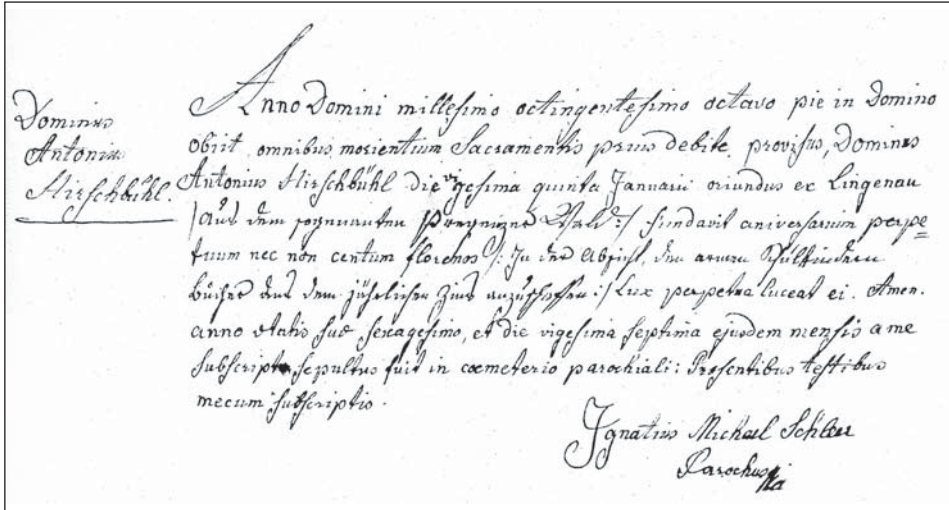 Dominus
Antonius
Hirschbühl.
Anno Domini millesimo octingentesimo octavo pie in Domino
obiit omnibus morientium Sacramentis prius debite provisus, Dominus
Antonius Hirschbühl die vigesima quinta Januarii oriundus ex Lingenau
/: aus dem sogenannten Pregenzer Wald :/ fundavit aniversarium perpe=
tuum nec non centum florenos /: In der Absicht, den armen Schulkindern
bücher aus dem jährlichen Zins anzuschaffen :/ Lux perpetua luceat ei. Amen.
anno ætatis suæ sexagesimo, et die vigesima septima ejusdem mensis a me
subscripto sepultus fuit in coemeterio parochiali: Præsentibus testibus
mecum subscriptis.
Ignatius Michael
Parochus